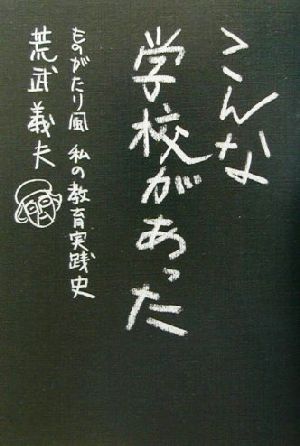 こんな
学校があった
ものがたり風 私の教育実践史
荒武義夫